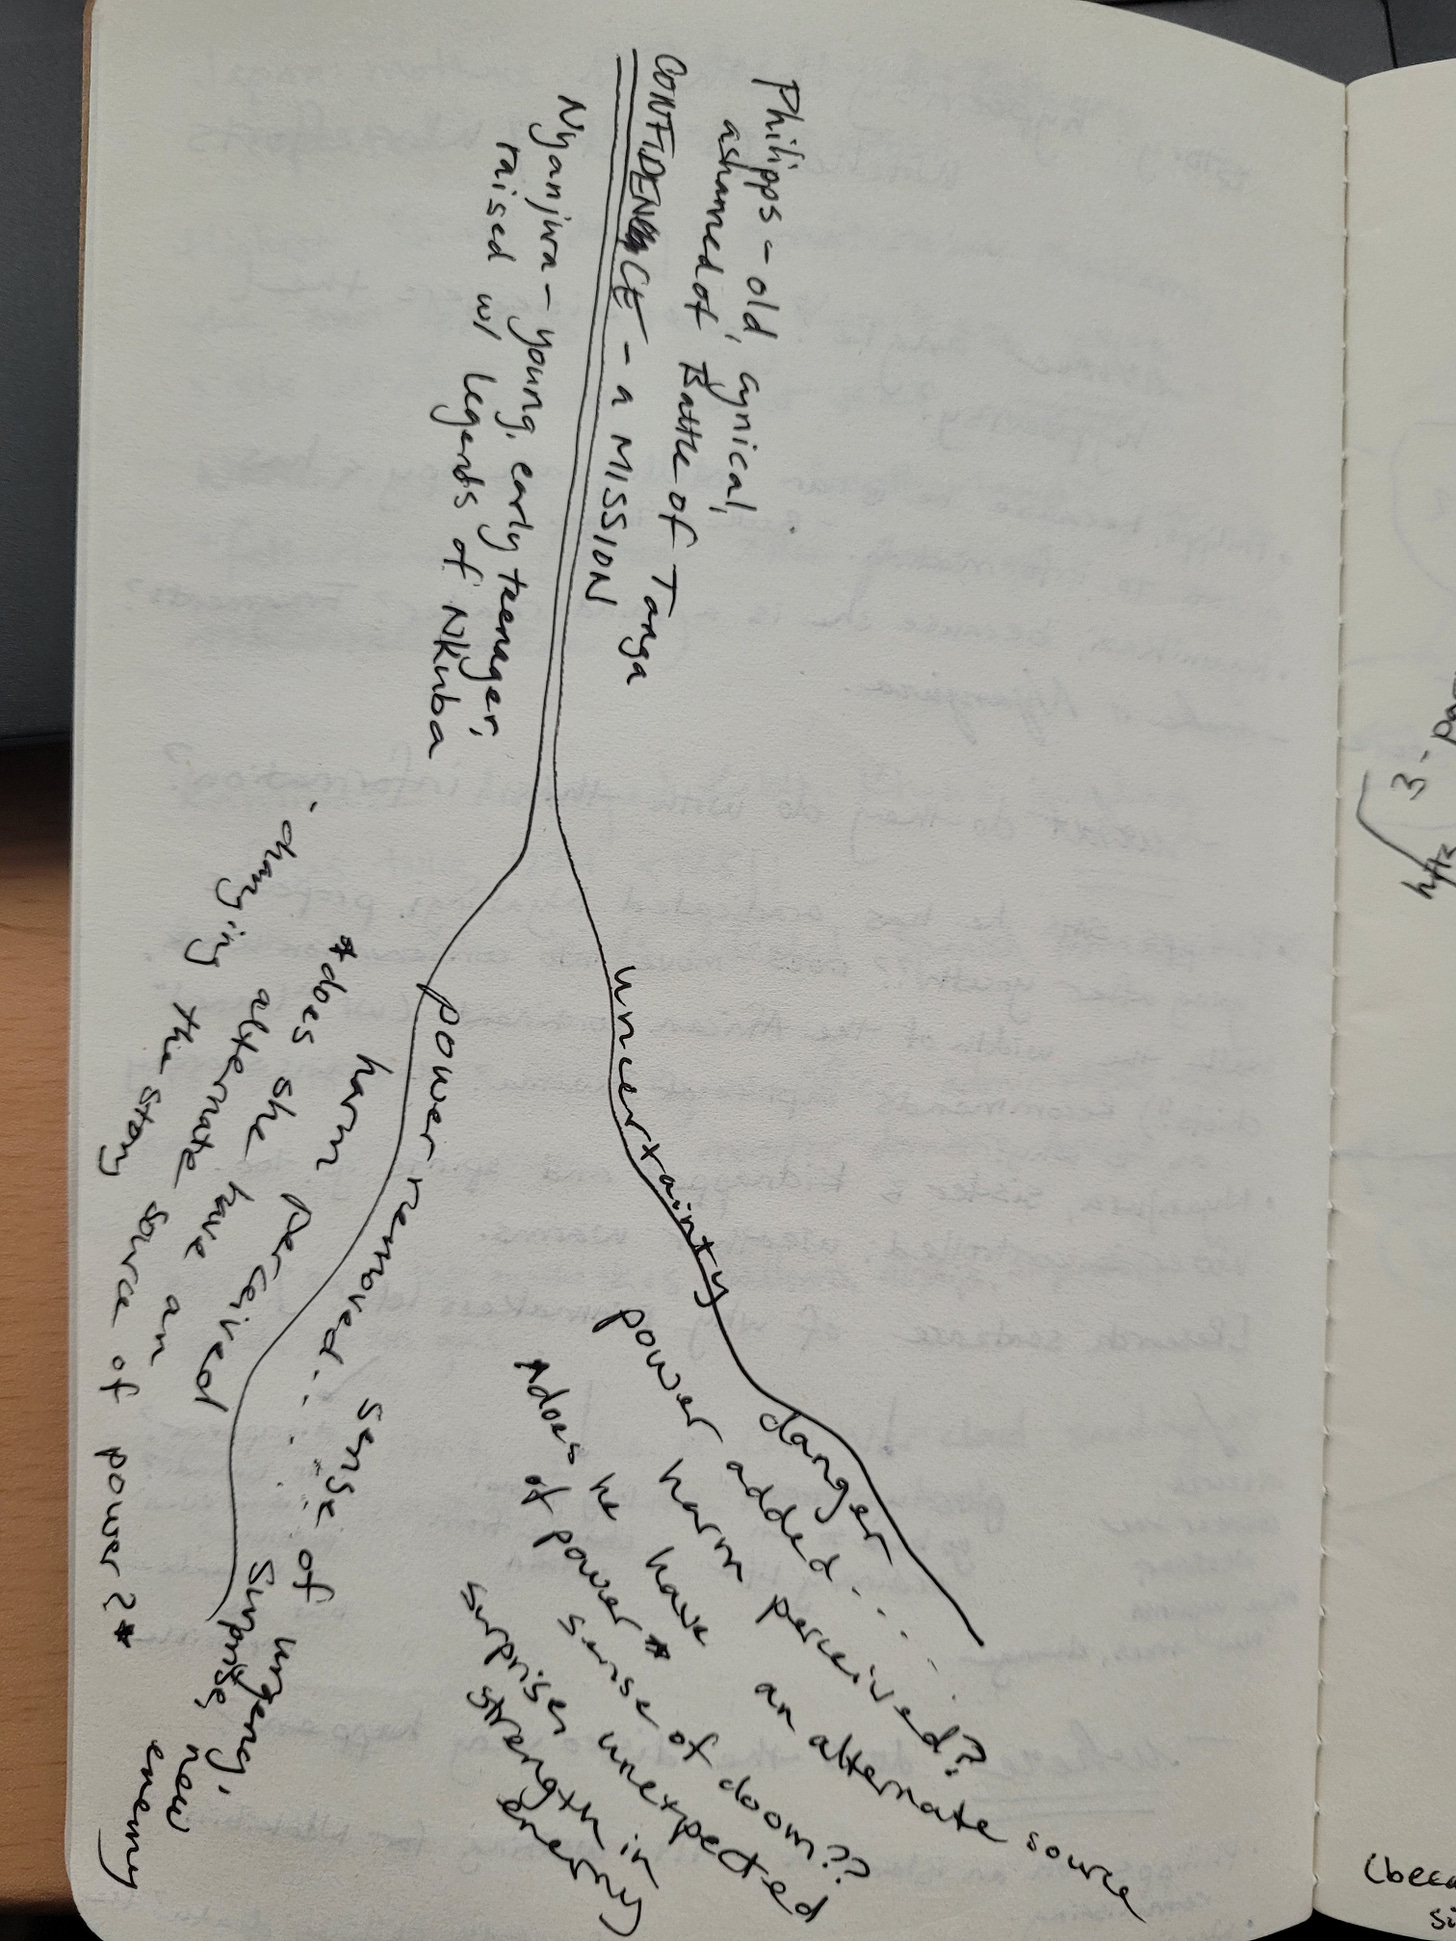 Philipps - old, cynical,
ashamed of Battle of Tanga
CONFIDENCE - a MISSION
Nyanjwa - young, early teenager,
raised w/ legends of Nkuba
uncertainty danger
power added...
harm perceived?
*does he have an alternate source
of power*
sense of doom??
surprise, unexpected
strength in
enemy
power removed... sense of urgency,
surprise, new
enemy
harm perceived
*does she have an
alternate source of power?*
- changing the story
3-
(beca
si